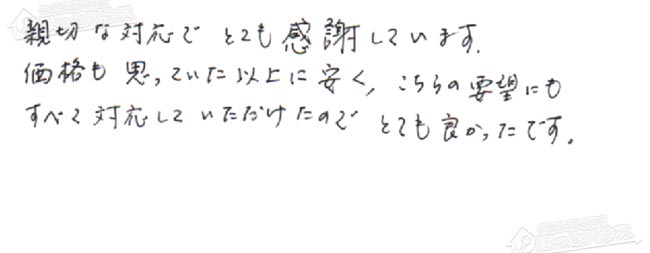 親切な対応でとても感謝しています.
価格も思っていた以上に安く, こちらの要望にも
すべて対応していただけたのでとても良かったです。